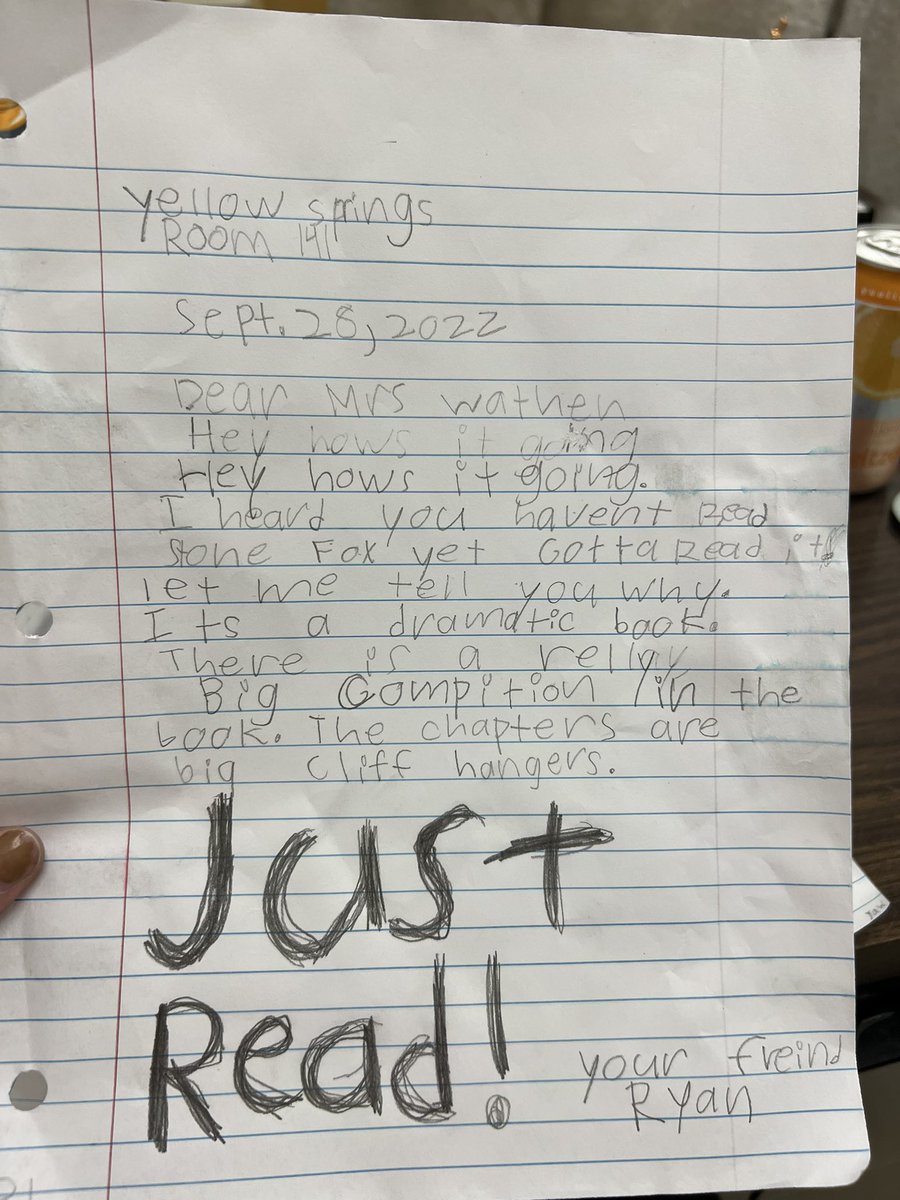 yellow springs
Room 141
Sept. 28, 2022
Dear Mrs wathen
Hey hows it going
Hey hows it going.
I heard you havent Read
Stone Fox yet Gotta Read it!
let me tell you why.
Its a dramatic book.
There is a rellay
Big Compition in the
book. The chapters are
big cliff hangers.
Just
Read!
your freind
Ryan